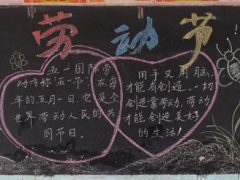 劳动节
五一国际劳
动节称五一节，在每
年的五月一日，它是全
世界劳动人民的共
同节日。
用手又用脑，
才能有创造，一切
创造靠劳动，劳动
才能创造美好
的生活！